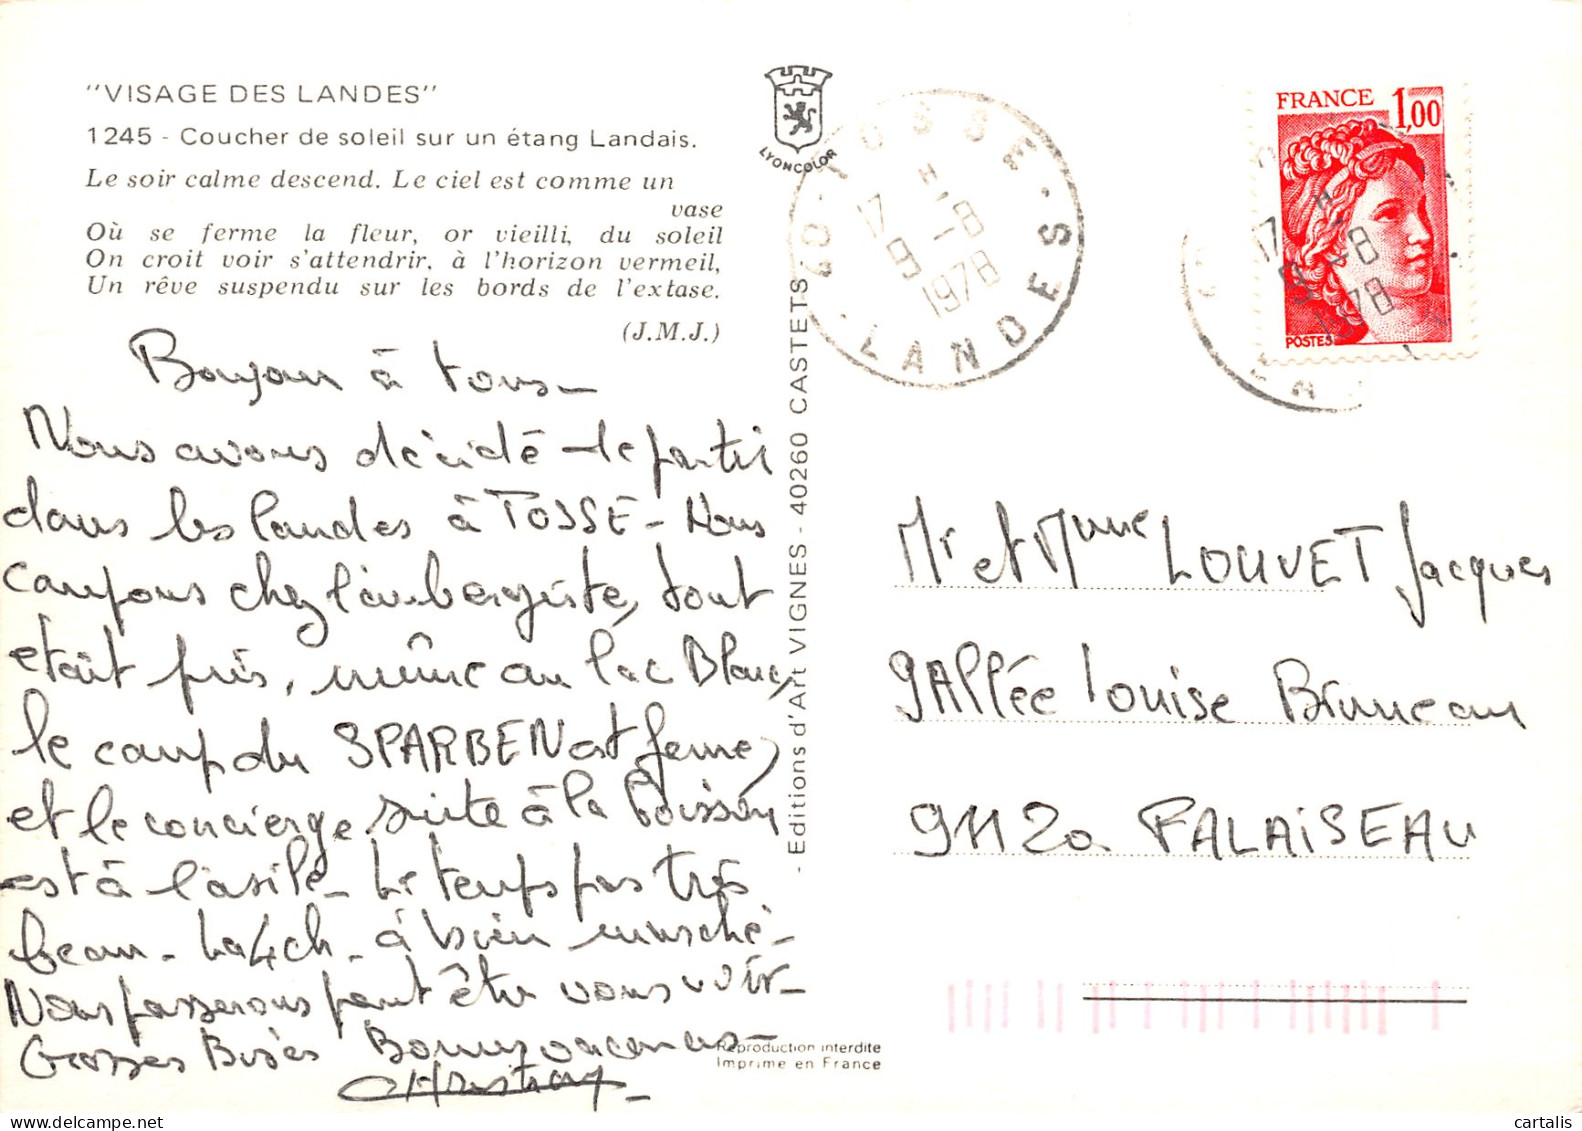 "VISAGE DES LANDES"
1245 - Coucher de soleil sur un étang Landais.
Le soir calme descend. Le ciel est comme un
vase
Où se ferme la fleur, or vieilli, du soleil
On croit voir s'attendrir, à l'horizon vermeil,
Un rêve suspendu sur les bords de l'extase.
(J.M.J.)
Bonjour à tous -
Nous avons décidé de partir
dans les landes à TOSSE - Nous
campons chez l'aubergiste, tout
était pris, même au lac Blanc,
le camp du SPARBEN est fermé,
et le concierge suite à la boisson
est à l'asile - Le temps pas très
beau - La 4ch - à bien marché -
Nous passerons peut être vous voir -
Grosses Bises Bonnes vacances -
LYONCOLOR
- Editions d'Art VIGNES - 40260 CASTETS
Reproduction interdite
Imprimé en France
40 - TOSSE - LANDES
17 H.
9 - 8
1978
FRANCE 1,00
POSTES
17 H.
9 - 8
1978
Mr et Mme LOUVET Jacques
9 Allée Louise Bruneau
91120 PALAISEAU
cartalis